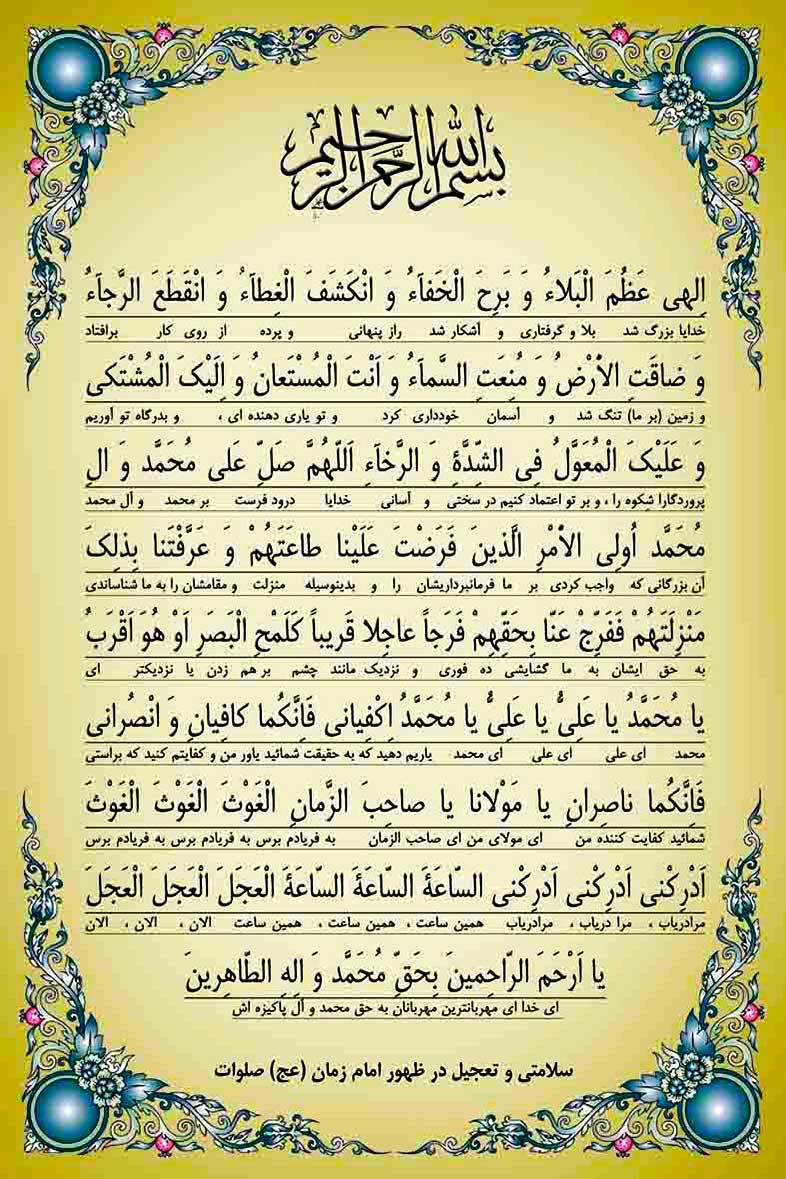 بسم الله الرحمن الرحیم
اِلهی عَظُمَ الْبَلاءُ وَ بَرِحَ الْخَفاءُ وَ انْکَشَفَ الْغِطاَءُ وَ انْقَطَعَ الرَّجاَءُ
خدایا بزرگ شد بلا و گرفتاری و آشکار شد راز پنهانی و پرده از روی کار برافتاد
وَ ضاقَتِ الاَْرْضُ وَ مُنِعَتِ السَّماَءُ وَ اَنْتَ الْمُسْتَعانُ وَ اِلَیْکَ الْمُشْتَکی
و زمین (بر ما) تنگ شد و آسمان خودداری کرد و تو یاری دهنده ای ، و بدرگاه تو آوریم
وَ عَلَیْکَ الْمُعَوَّلُ فِی الشِّدَّةِ وَ الرَّخاَءِ اَللّهُمَّ صَلِّ عَلی مُحَمَّد وَ الِ
پروردگارا شکوه را ، و بر تو اعتماد کنیم در سختی و آسانی خدایا درود فرست بر محمد و آل محمد
مُحَمَّد اُولِی الاَْمْرِ الَّذینَ فَرَضْتَ عَلَیْنا طاعَتَهُمْ وَ عَرَّفْتَنا بِذلِکَ
آن بزرگانی که واجب کردی بر ما فرمانبرداریشان را و بدینوسیله منزلت و مقامشان را به ما شناساندی
مَنْزِلَتَهُمْ فَفَرِّجْ عَنّا بِحَقِّهِمْ فَرَجاً عاجِلا قَریباً کَلَمْحِ الْبَصَرِ اَوْ هُوَ اَقْرَبُ
به حق ایشان به ما گشایشی ده فوری و نزدیک مانند چشم بر هم زدن یا نزدیکتر ای
یا مُحَمَّدُ یا عَلِیُّ یا عَلِیُّ یا مُحَمَّدُ اِکْفِیانی فَاِنَّکُما کافِیانِ وَ انْصُرانی
محمد ای علی ای علی ای محمد یاریم دهید که به حقیقت شمائید یاور من و کفایتم کنید که براستی
فَاِنَّکُما ناصِرانِ یا مَوْلانا یا صاحِبَ الزَّمانِ الْغَوْثَ الْغَوْثَ الْغَوْثَ
شمائید کفایت کننده من ای مولای من ای صاحب الزمان به فریادم برس به فریادم برس به فریادم برس
اَدْرِکْنی اَدْرِکْنی اَدْرِکْنی السّاعَةَ السّاعَةَ السّاعَةَ الْعَجَلَ الْعَجَلَ الْعَجَلَ
مرادریاب ، مرا دریاب ، مرادریاب همین ساعت ، همین ساعت ، همین ساعت الان ، الان ، الان
یا اَرْحَمَ الرّاحِمینَ بِحَقِّ مُحَمَّد وَ الِهِ الطّاهِرینَ
ای خدا ای مهربانترین مهربانان به حق محمد و آل پاکیزه اش
سلامتی و تعجیل در ظهور امام زمان (عج) صلوات